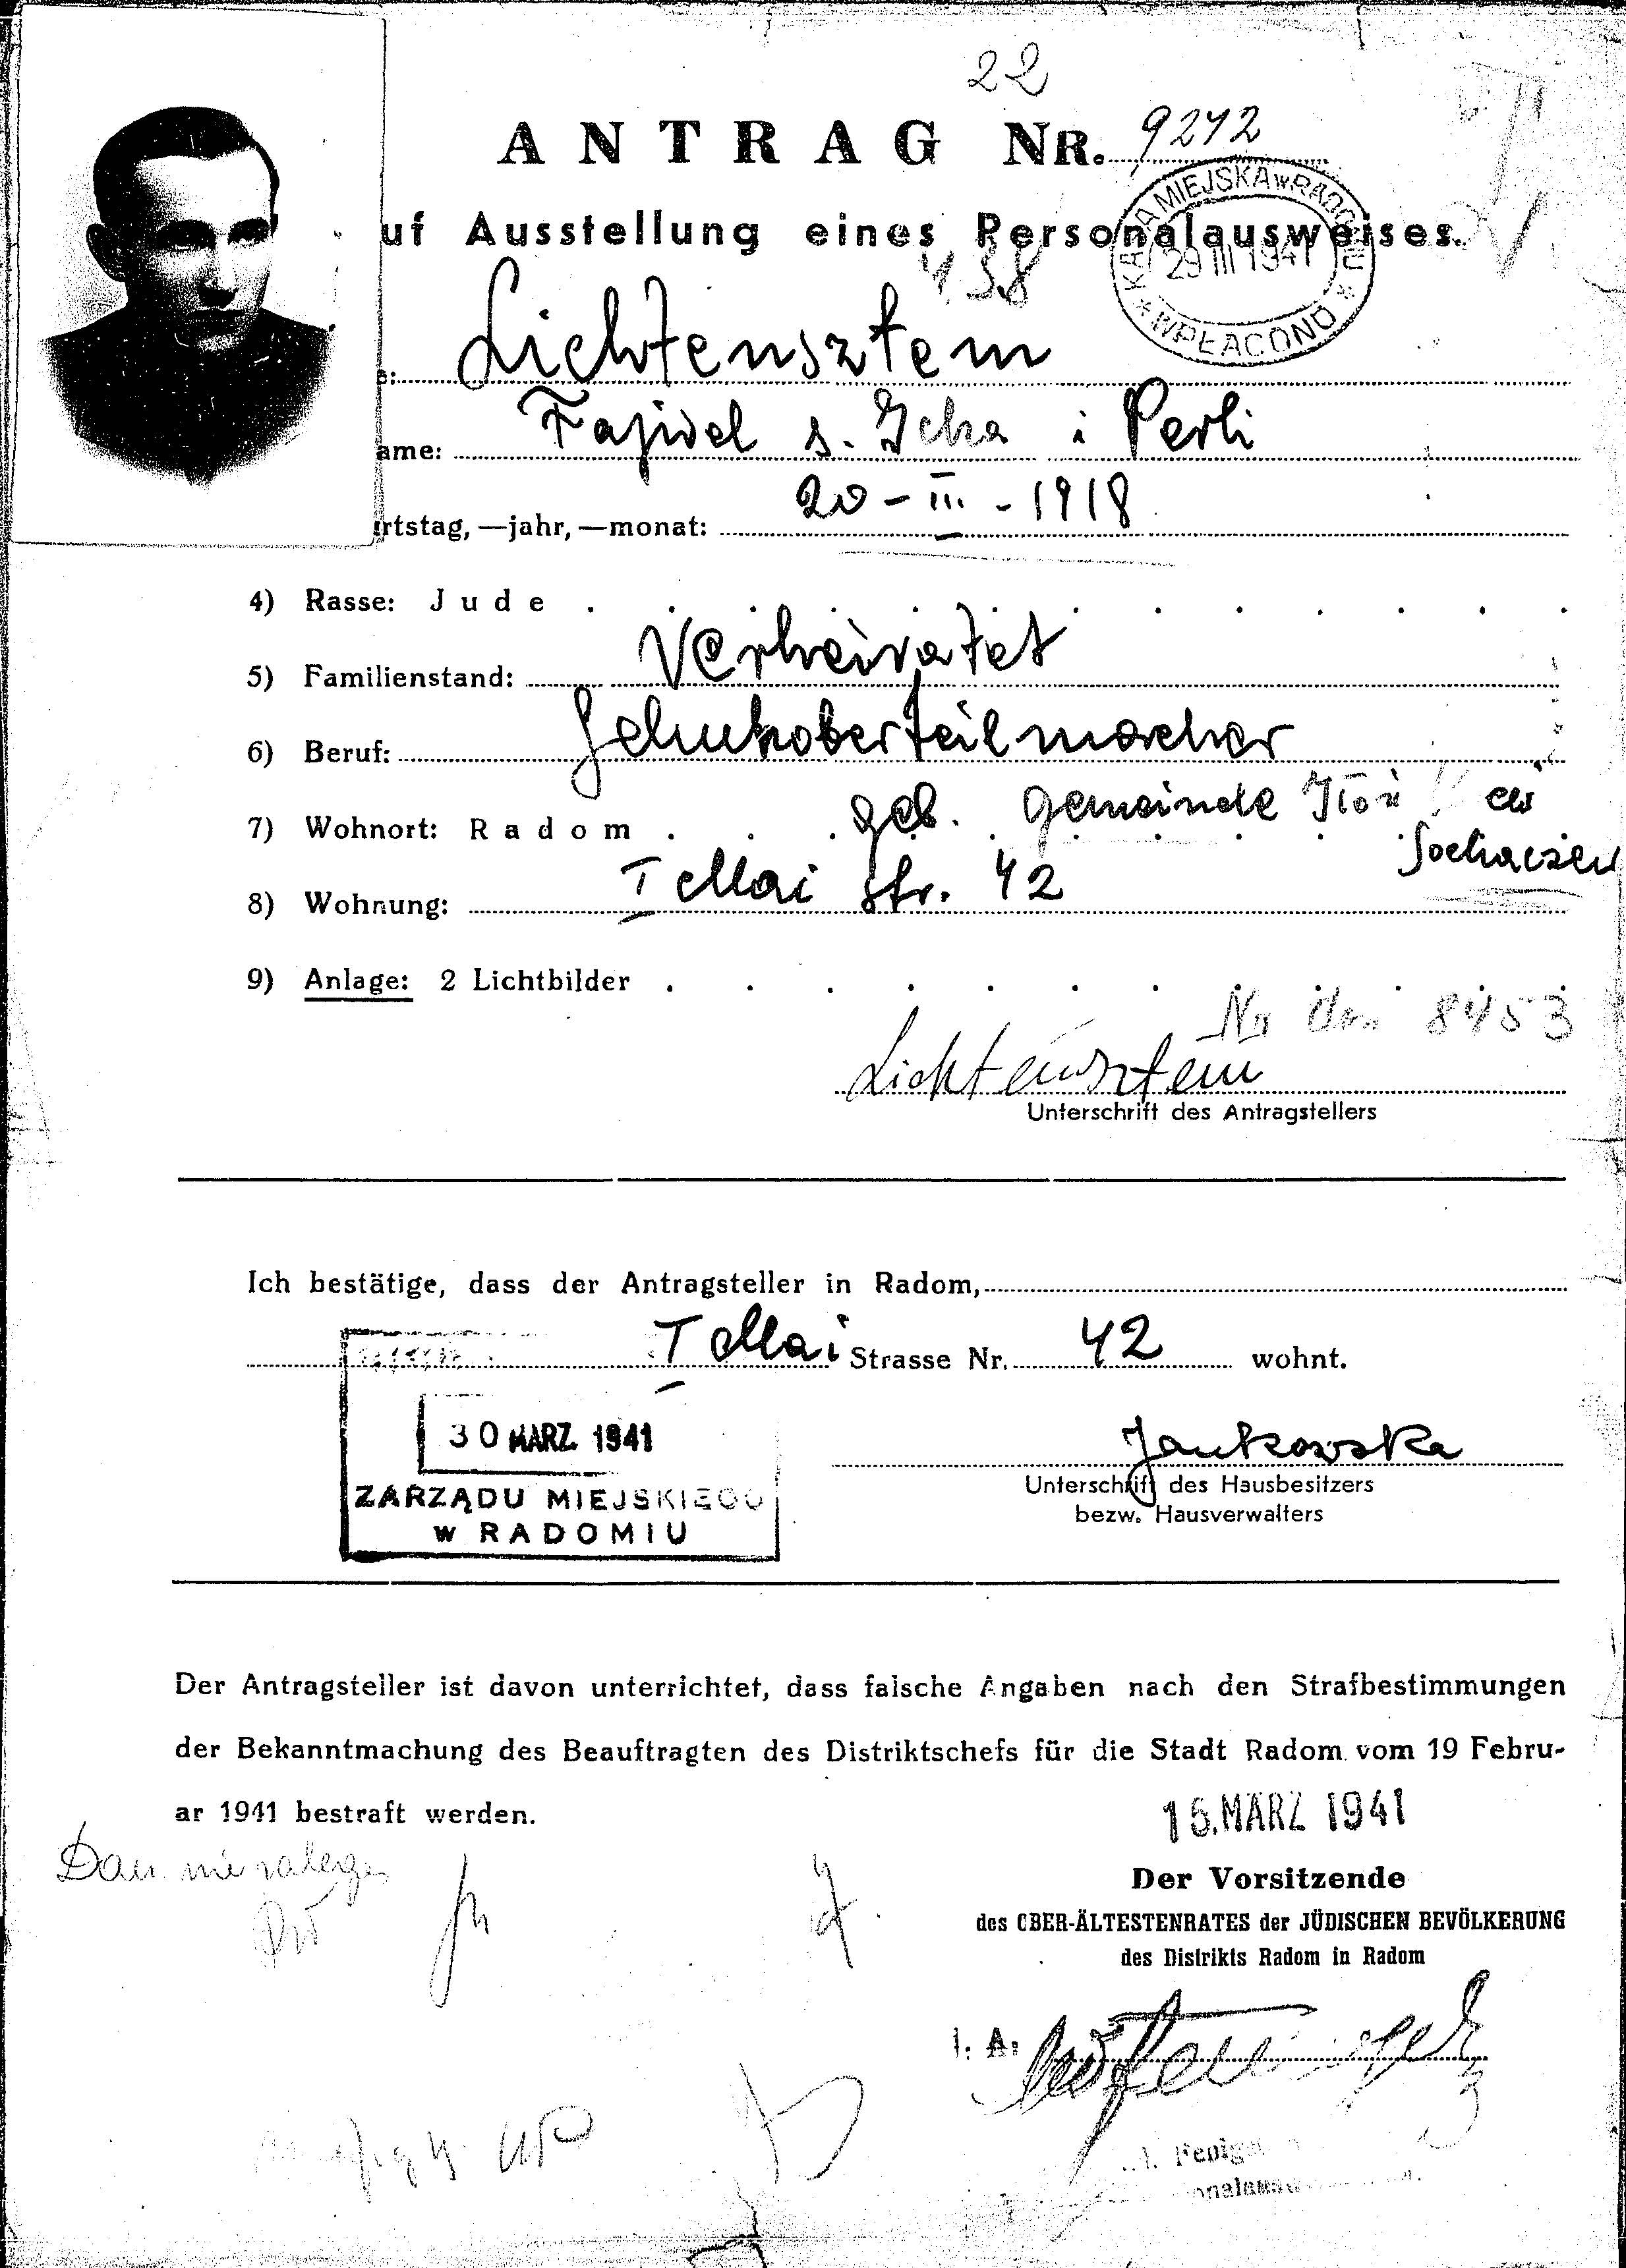 22
ANTRAG NR. 9242
uf Ausstellung eines Personalausweises.
KASA MIEJSKA w RADOMIU
29 III 1941
* WPŁACONO *
438
e: Lichtensztein
ame: Fajwel s. Icka i Perli
rtstag, —jahr, —monat: 20 - III - 1918
4) Rasse: Jude
5) Familienstand: Verheiratet
6) Beruf: Schuhoberteilmacher
7) Wohnort: Radom geb. Gemeinde Iłów
8) Wohnung: I Mai Str. 42
9) Anlage: 2 Lichtbilder
8453
Lichtensztein
Unterschrift des Antragstellers
Ich bestätige, dass der Antragsteller in Radom,
I Mai Strasse Nr. 42 wohnt.
30 MARZ. 1941
ZARZĄDU MIEJSKIEGO
w RADOMIU
Jankowska
Unterschrift des Hausbesitzers
bezw. Hausverwalters
Der Antragsteller ist davon unterrichtet, dass falsche Angaben nach den Strafbestimmungen
der Bekanntmachung des Beauftragten des Distriktschefs für die Stadt Radom vom 19 Febru-
ar 1941 bestraft werden.
15. MÄRZ 1941
Der Vorsitzende
des OBER-ÄLTESTENRATES der JÜDISCHEN BEVÖLKERUNG
des Distrikts Radom in Radom
I. A.